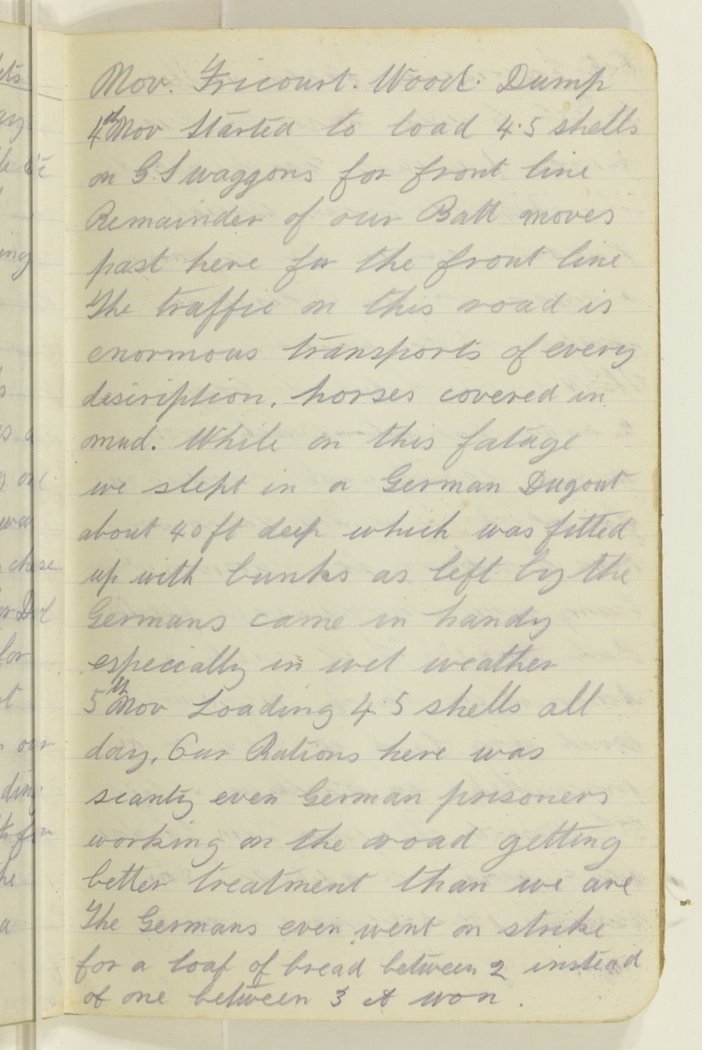 Nov. Fricourt. Wood. Dump
4th Nov Started to load 4.5 shells
on G.S waggons for front line
Remainder of our Batt moves
past here for the front line
The traffic on this road is
enormous transports of every
desiription. horses covered in
mud. While on this fatage
we slept in a German Dugout
about 40 ft deep which was fitted
up with bunks as left by the
Germans came in handy
especially in wet weather
5th Nov Loading 4.5 shells all
day. Our Rations here was
scanty even German prisoners
working on the road getting
better treatment than we are
The Germans even went on strike
for a loaf of bread between 2 instead
of one between 3 & won.